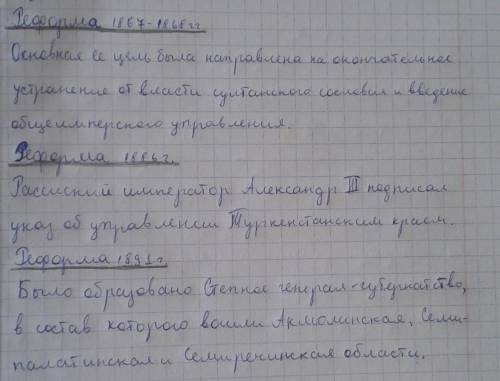 Реформа 1867-1868гг.
Основная ее цель была направлена на окончательное
устранение от власти султанского сословия и введение
общеимперского управления.
Реформа 1886г.
Россиский император Александр III подписал
указ об управлении Туркенстанским краем.
Реформа 1891г.
Было образовано Степное генерал-губернатство,
в состав которого вошли Акмолинская, Семи-
палатинская и Семиречинская области.